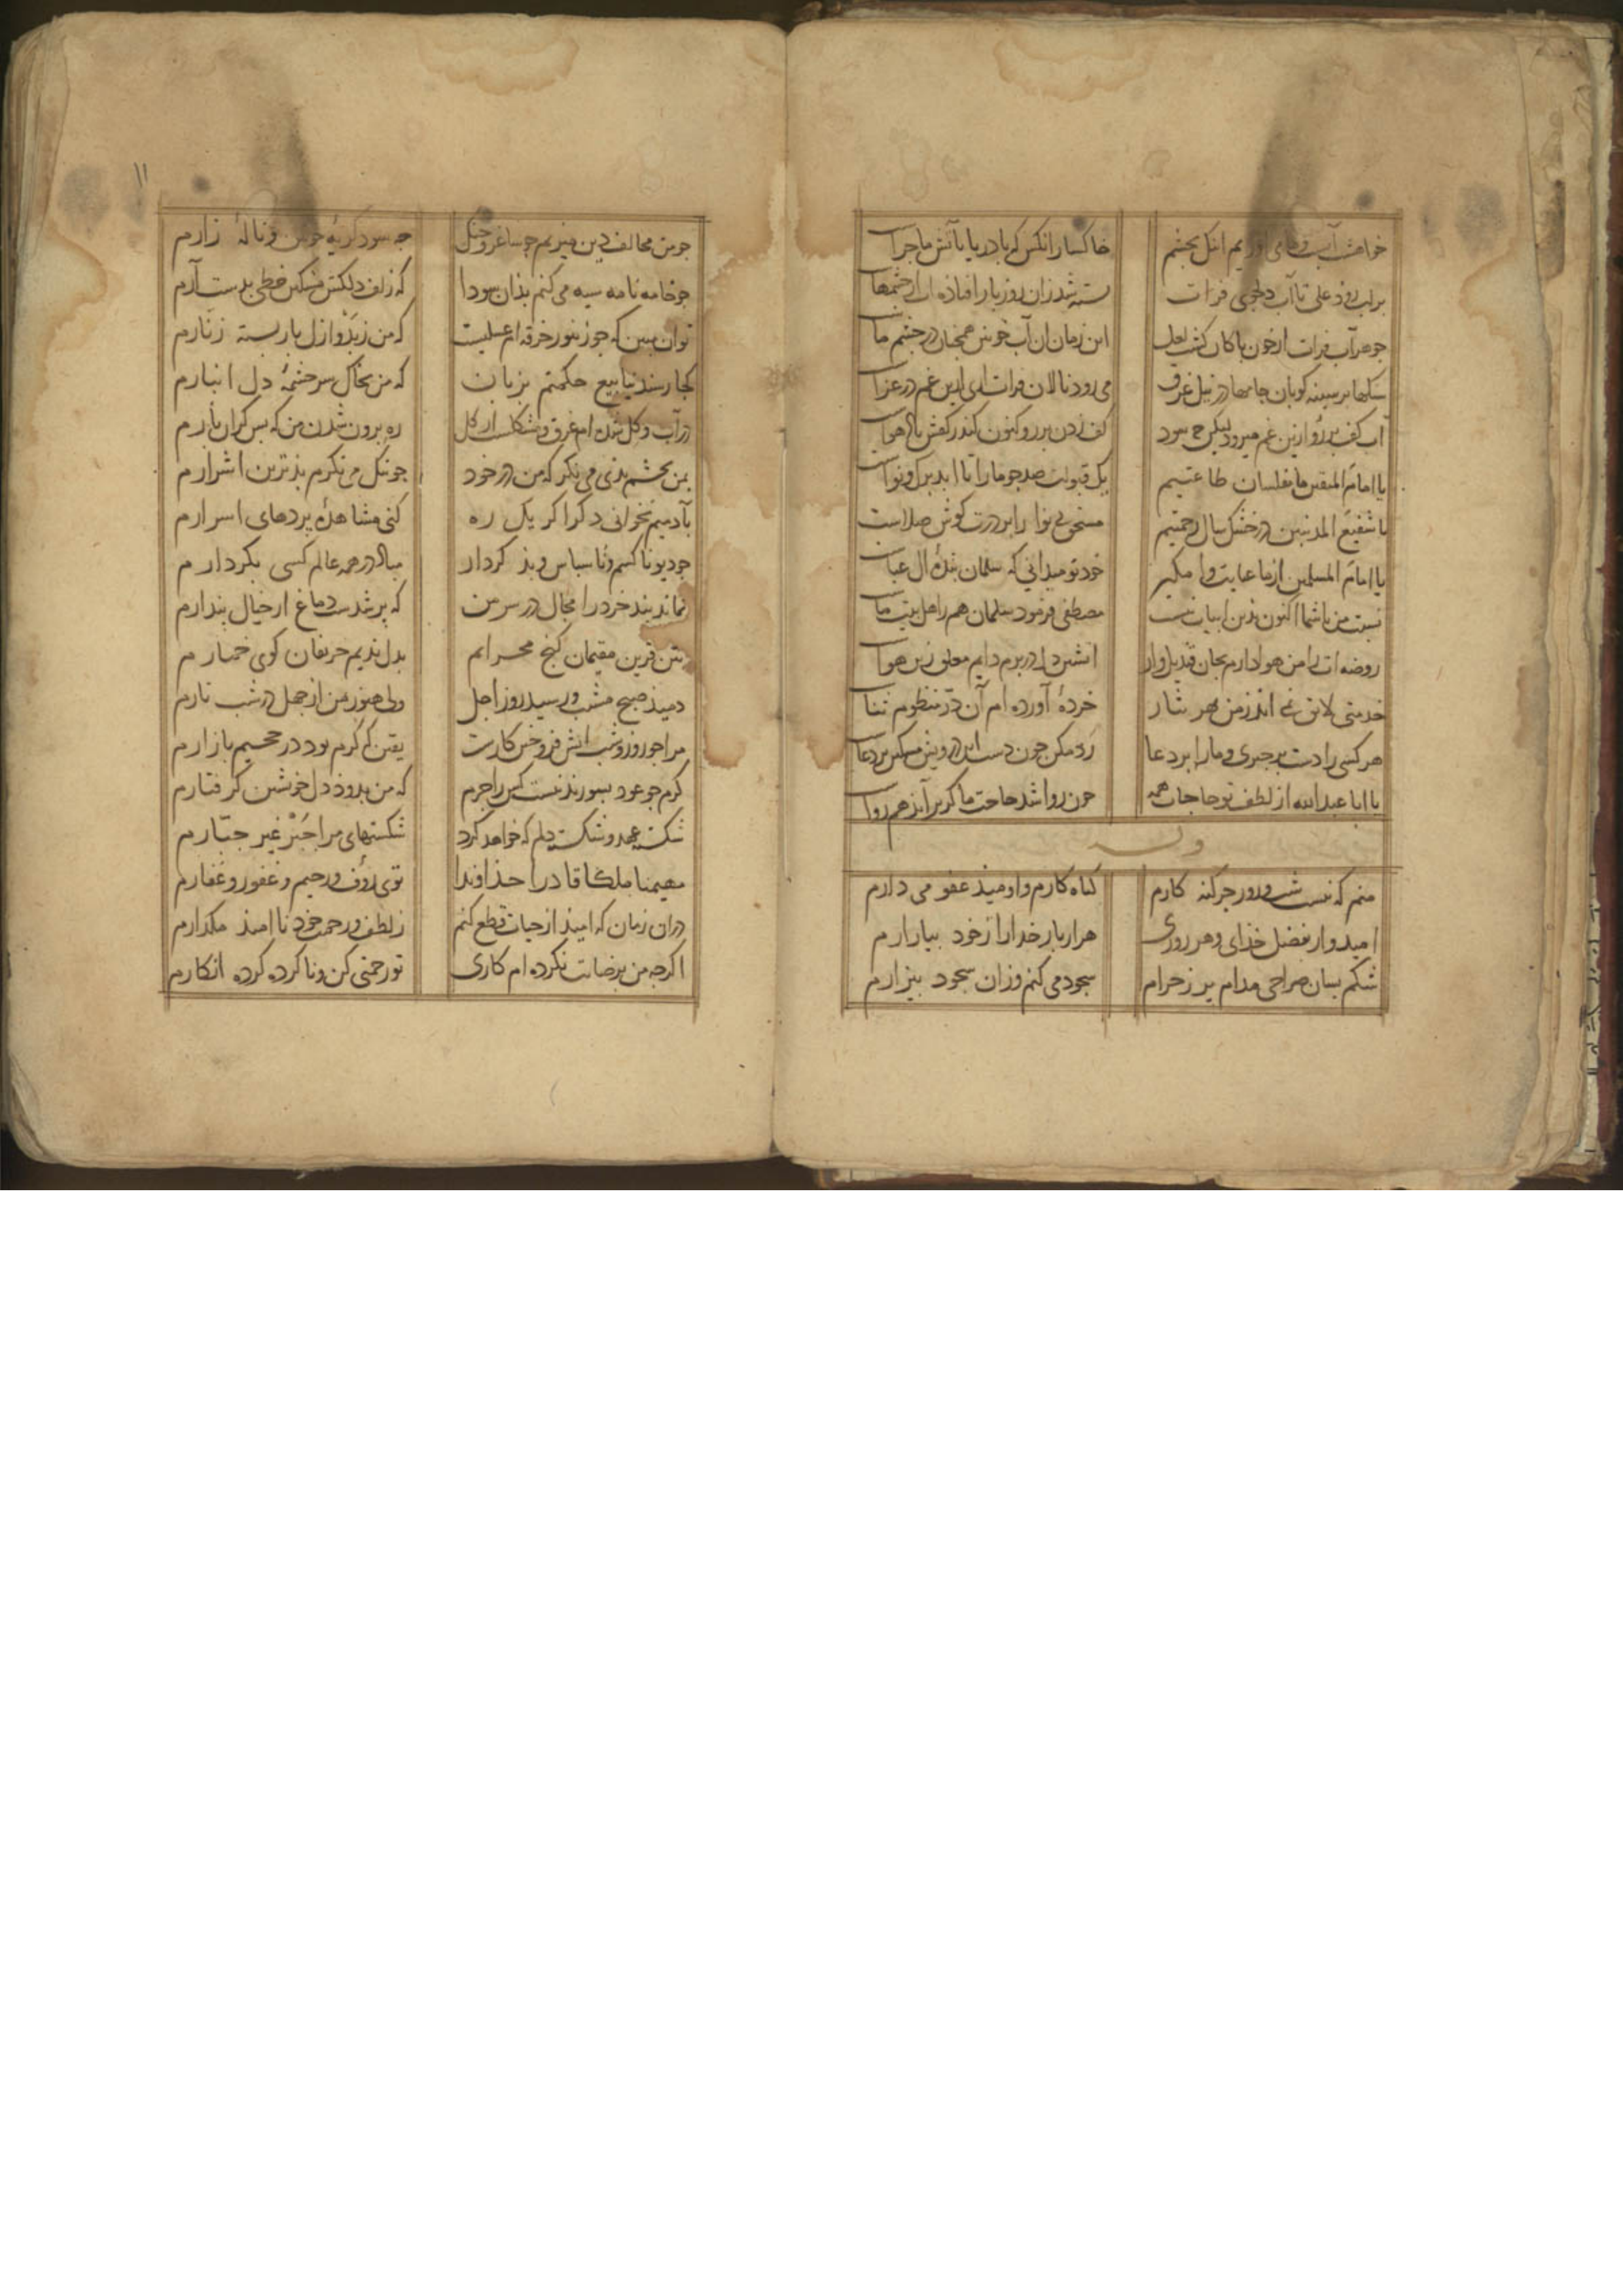 خواهشت آب و ما می آوریم اینک بچشم خاکسار آنکس که با دریا باتش ماجراست
بر لب روذ علی تا آب دلجوی فرات بسته شد زان روز باز افتاذه آب از چشمهاست
جوهر آب فرات از خون پاکان کشت لعل این زمان آن آب خونین همچنان در چشم ماست
سنکها بر سینه کوبان جامها در نیل غرق می روذ نالان فرات اری ازین غم در عزاست
آب کف بر رو ازین غم میزند لیکن چه سود کف زدن بر رو کنون کندر کفش باد هواست
یا امام المتقین ما مفلسان طاعتیم یک قبولت صد جو ما را تا ابد برک و نواست
یا شفیع المذنبین در خشک سال رحمتیم مستحق بی نوا را بر درت کوش صلاست
یا امام المسلمین از ما عنایت وا مکیر خود تو میدانی که سلمان بندهٔ آل عباست
نسبت من با شما اکنون بذین ابیات نیست مصطفی فرمود سلمان هم ز اهل بیت ماست
روضه ات را من هوادارم بجان قندیل وار آتشین دل در برم دایم معلق زین هواست
خدمتی لایق نمی آید ز من بهر نثار خردهٔ آورده ام آن در منظوم ثناست
هر کسی را دست بر چیزی و ما را بر دعا رد مکن چون دست این درویش مسکین بر دعاست
یا ابا عبدالله از لطف تو حاجات همه چون روا شد حاجت ما کر برآید هم رواست
وله
منم که نیست شب و روز جز کنه کارم کناه کارم و اومیذ عفو می دارم
امیدوار بفضل خذای و هر روزی هزار بار خدا را ز خود بیازارم
شکم بسان صراحی مدام پر ز حرام سجود می کنم و زان سجود بیزارم
۱۱
چو من مخالف دین میزیم چو ساغر و چنک چه سود کریهٔ خونین و نالهٔ زارم
چو خامه نامه سیه می کنم بذان سودا که زلف دلکش مشکین خطی بدست آرم
توان ببین که چو زنبور خرقه ام عسلیست که من ز بدو ازل باز بسته زنارم
کجا رسد ینابیع حکمتم بزبان که من بخاک سر چشمهٔ دل انبارم
در آب و کل شده ام غرق و مشکلست از کل ره برون شدن من که بس کران بارم
بمن بچشم بذی می نکر که من در خود چو نیک می نکرم بذترین اشرارم
بآدمیم نخوانی دکر اکر یک ره کنی مشاهدهٔ پردهای اسرارم
چو دیو ناکسم و ناسپاس و بذ کردار مباد در همه عالم کسی بکردارم
نماند پند خرد را مجال در سر من که پر شدست دماغ از خیال پندارم
بتن قرین مقیمان کنج محرابم بدل ندیم حریفان کوی خمارم
دمید صبح مشیب و رسید روز اجل ولی هنوز من از جهل در شب تارم
مرا چو روز و شب آتش فروختن کارست یقین که کرم بود در جحیم بازارم
کرم چو عود بسوزند نیست کس را جرم که من بدوذ دل خویشتن کرفتارم
شکست عهد و شکست دلم که خواهد کرد شکستهای مرا جبر غیر جبارم
مهیمنا ملکا قادرا خذاوندا توی رؤف و رحیم و غفور و غفارم
دران زمان که امیذ از حیات قطع کنم ز لطف و رحمت خود ناامیذ مکذارم
اکرچه من برضایت نکرده ام کاری تو رحمتی کن و ناکرده کرده انکارم